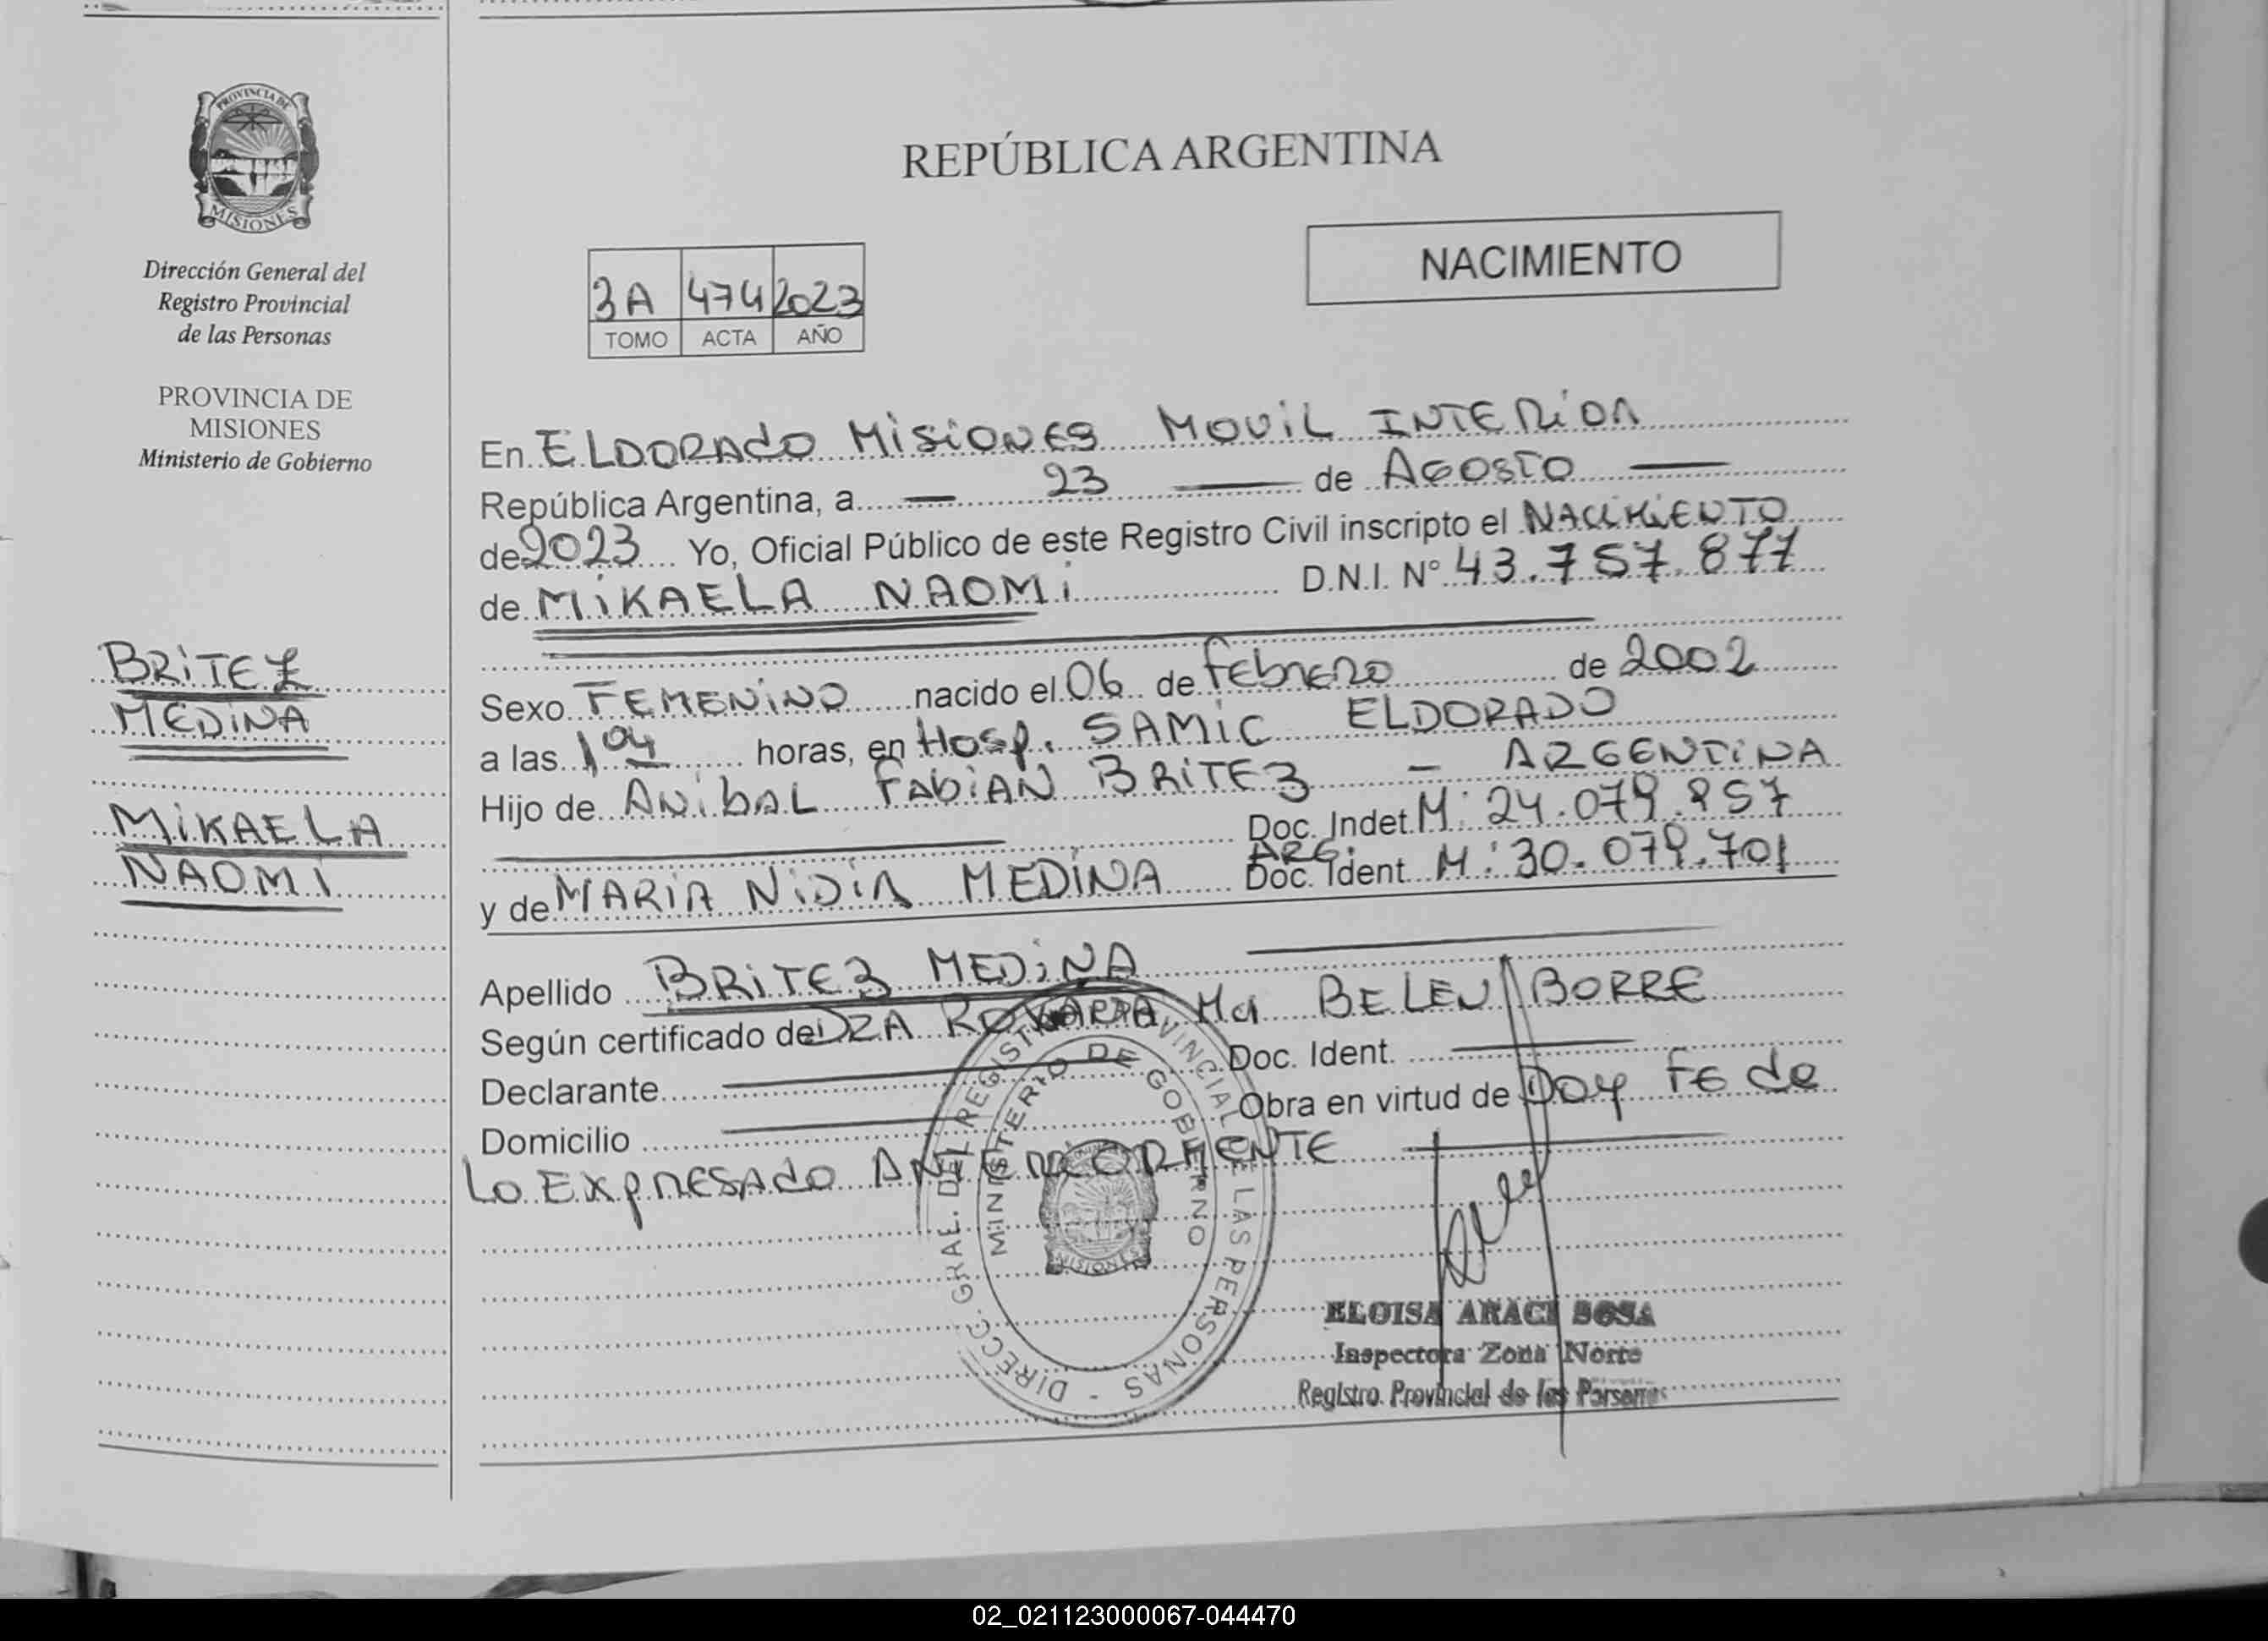 PROVINCIA DE
MISIONES
Dirección General del
Registro Provincial
de las Personas
PROVINCIA DE
MISIONES
Ministerio de Gobierno
BRITEZ
MEDINA
MIKAELA
NAOMI
REPÚBLICA ARGENTINA
NACIMIENTO
3A 474 2023
TOMO ACTA AÑO
En ELDORADO MISIONES MOVIL INTERIOR
República Argentina, a 23 de AGOSTO
de 2023 Yo, Oficial Público de este Registro Civil inscripto el NACIMIENTO
de MIKAELA NAOMI D.N.I. N° 43.757.877
Sexo FEMENINO nacido el 06 de febrero de 2002
a las 1 04 horas, en Hosp. SAMIC ELDORADO
Hijo de ANIBAL FABIAN BRITEZ - ARGENTINA
Doc. Indet. M: 24.079.857
ARG.
y de MARIA NIDIA MEDINA Doc. Ident. M: 30.079.701
Apellido BRITEZ MEDINA
Según certificado de DRA Ma BELEN BORRE
Declarante Doc. Ident.
Domicilio Obra en virtud de Doy FE de
Lo EXPRESADO ANTERIORMENTE
DIRECC. GRAE. DEL REGISTRO PROVINCIAL DE LAS PERSONAS -
MINISTERIO DE GOBIERNO
MISIONES
ELOISA ARACI SOSA
Inspectora Zona Norte
Registro Provincial de las Personas
02_021123000067-044470